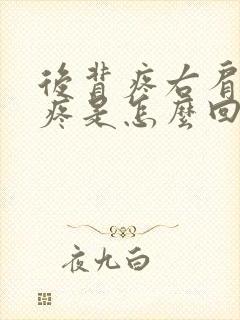 後背疼右肩
疼是怎麼回
夜九白